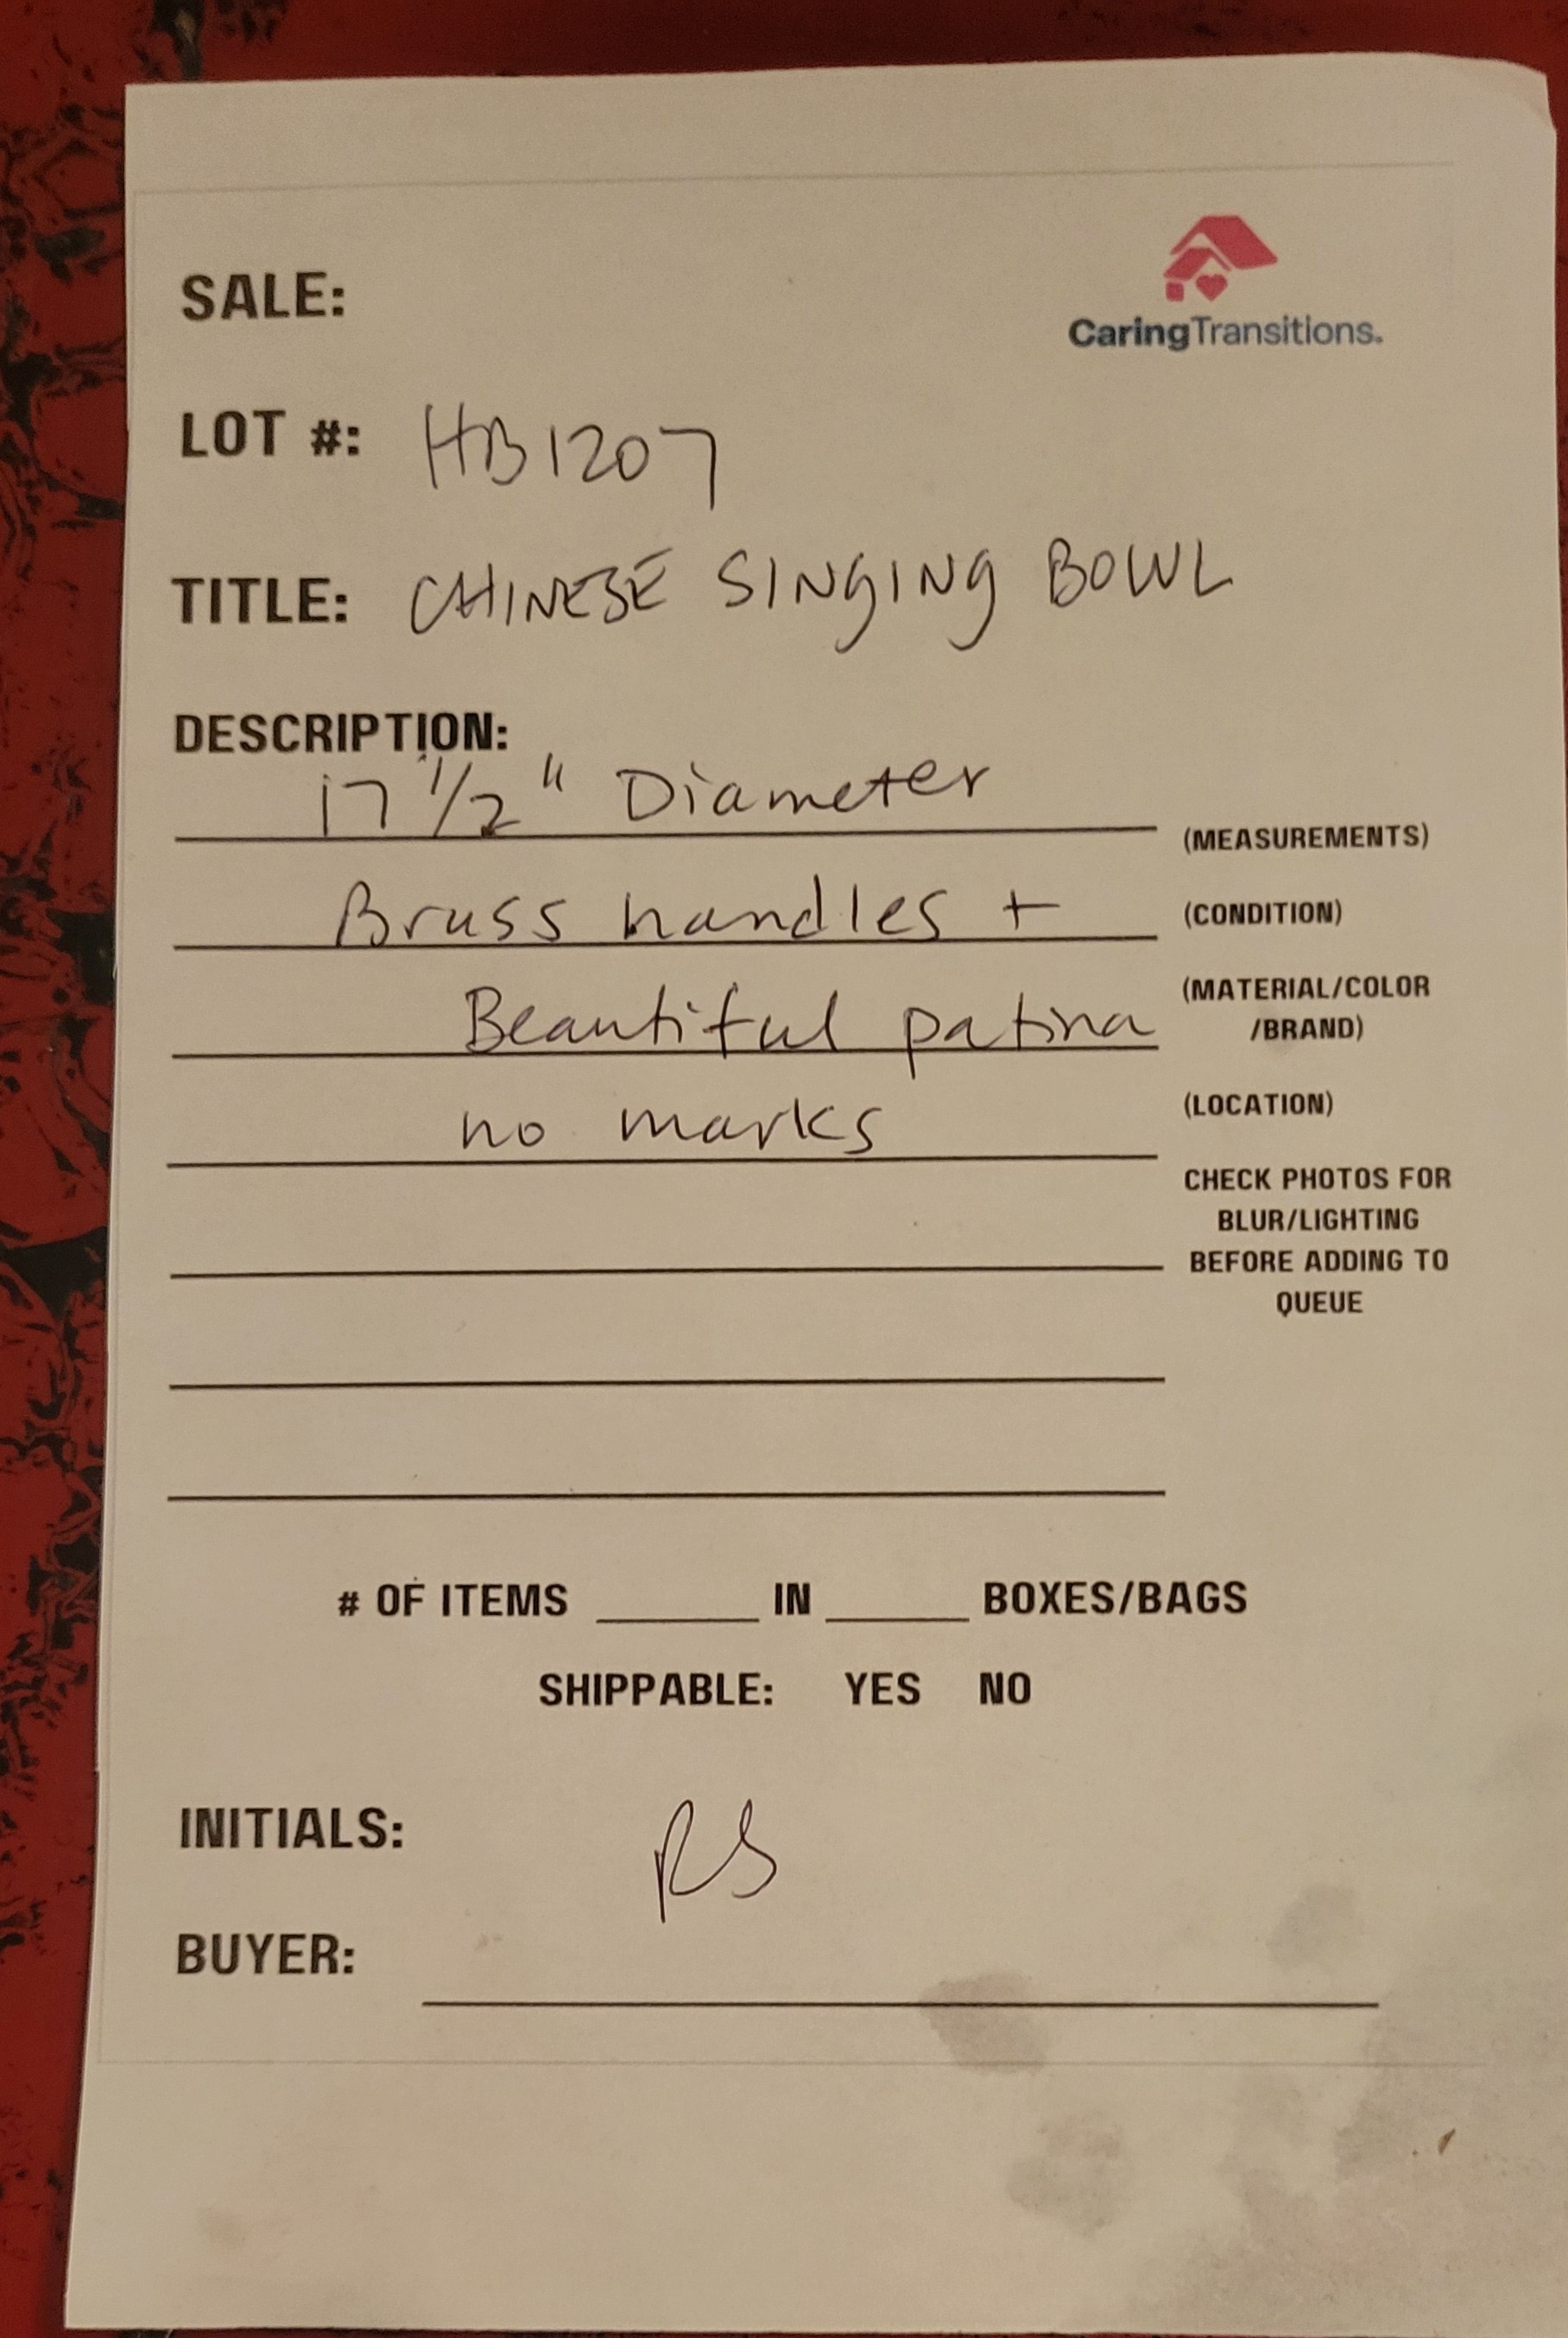 SALE:
CaringTransitions.
LOT #: HB1207
TITLE: CHINESE SINGING BOWL
DESCRIPTION:
17 1/2" Diameter
(MEASUREMENTS)
Brass handles +
(CONDITION)
Beautiful patina
(MATERIAL/COLOR
/BRAND)
no marks
(LOCATION)
CHECK PHOTOS FOR
BLUR/LIGHTING
BEFORE ADDING TO
QUEUE
# OF ITEMS ______ IN ______ BOXES/BAGS
SHIPPABLE: YES NO
INITIALS: RS
BUYER: